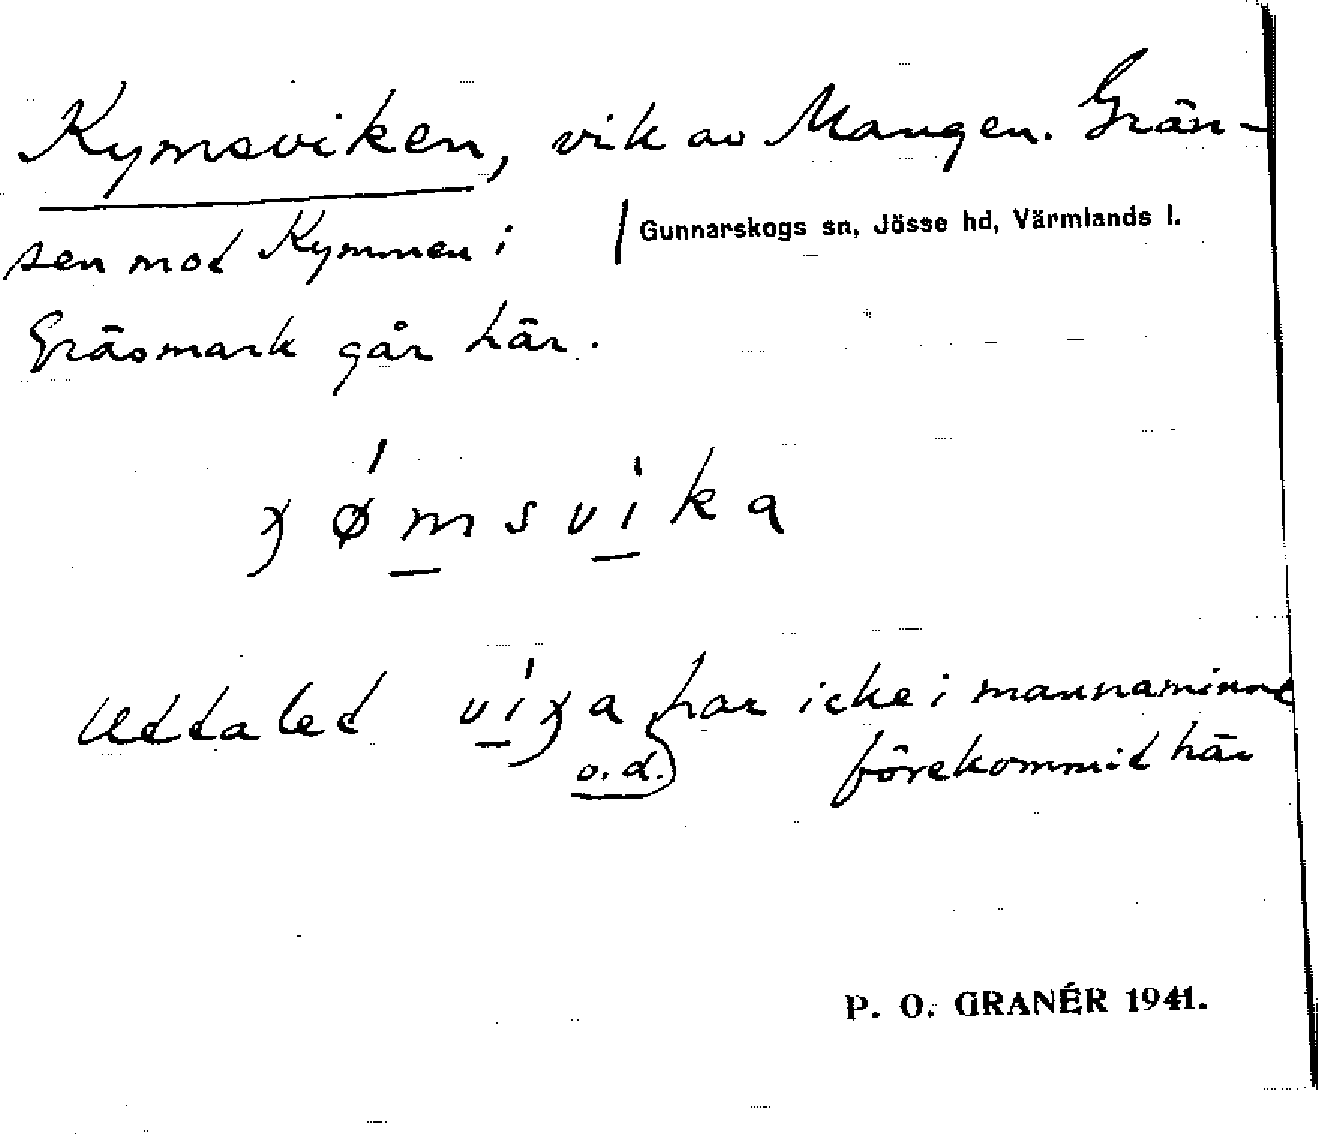 Kymsviken, vik av Mangen. Grän-
sen mot Kymmen i
Gunnarskogs sn, Jösse hd, Värmlands l.
Gräsmark går här.
χ ǿ m s v í k a
Uttalet v í χ a har icke i mannaminne
o.d. förekommit här
P. O. GRANÉR 1941.